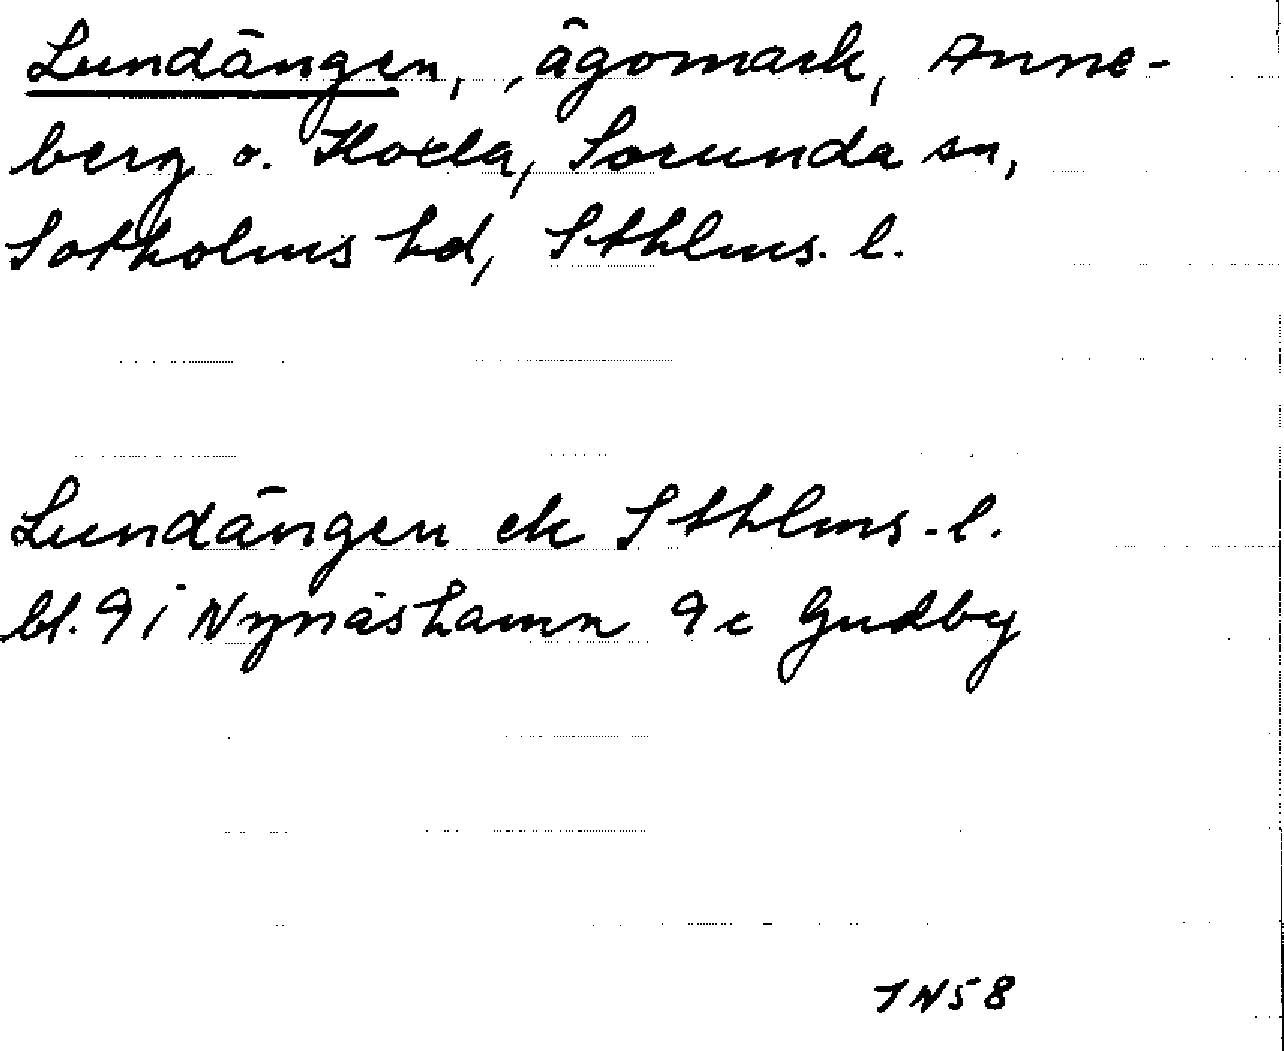 Lundängen, ägomark, Anne-
berg o. Hoxla, Sorunda sn,
Sotholms hd, Sthlms. l.
Lundängen ek Sthlms. l.
bl. 9 i Nynäshamn 9 c Gudby
TN58